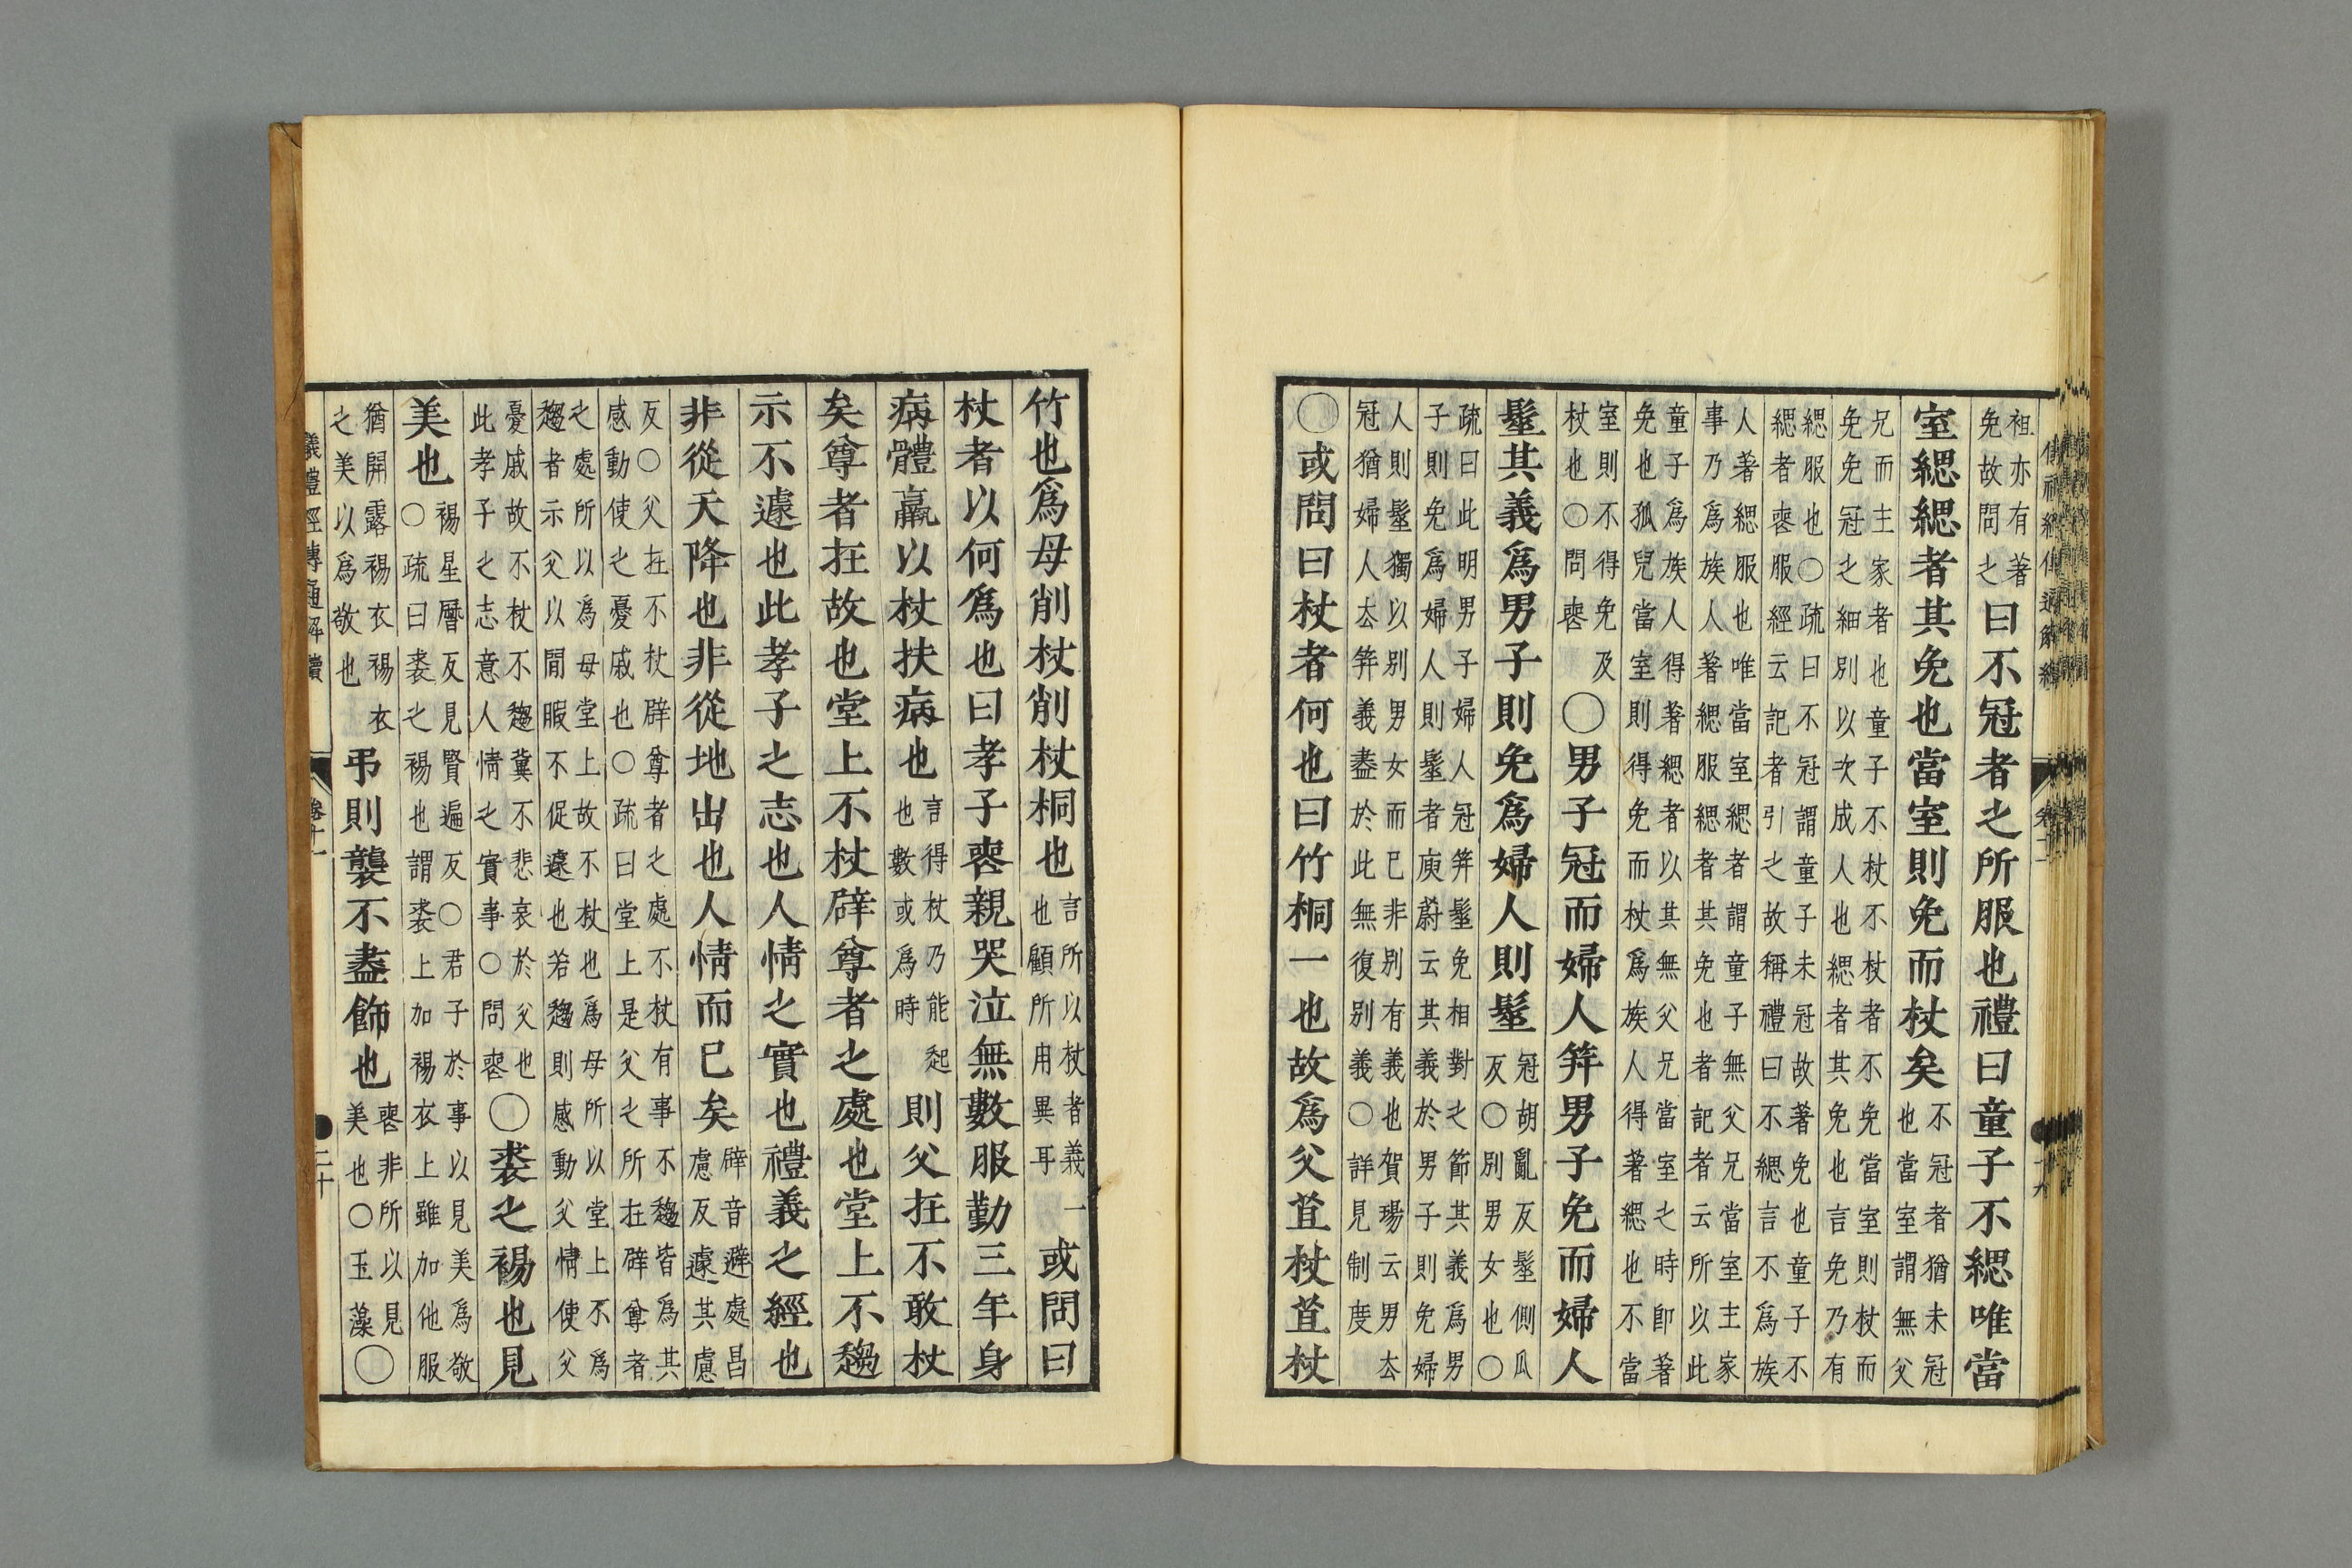 袒亦有著
免故問之
曰不冠者之所服也禮曰童子不緦唯當
室緦緦者其免也當室則免而杖矣
不冠者猶未冠
也當室謂無父
兄而主家者也童子不杖不杖者不免當室則杖而
免免冠之細別以次成人也緦者其免也言免乃有
緦服也○疏曰不冠謂童子未冠故著免也童子不
緦者喪服經云記者引之故稱禮曰不緦言不為族
人著緦服也唯當室緦者謂童子無父兄當室主家
事乃為族人著緦服緦者其免也者記者云所以此
童子為族人得著緦者以其無父兄當室之時即著
免也孤兒當室則得免而杖為族人得著緦也不當
室則不得免及
杖也○問喪
○男子冠而婦人笄男子免而婦人
髽其義爲男子則免爲婦人則髽
冠胡亂反髽側瓜
反○別男女也○
疏曰此明男子婦人冠笄髽免相對之節其義為男
子則免為婦人則髽者庾蔚云其義於男子則免婦
人則髽獨以別男女而已非別有義也賀瑒云男去
冠猶婦人去笄義盡於此無復別義○詳見制度
○或問曰杖者何也曰竹桐一也故爲父苴杖苴杖
竹也爲母削杖削杖桐也
言所以杖者義一
也顧所用異耳
或問曰
杖者以何爲也曰孝子喪親哭泣無數服勤三年身
病體羸以杖扶病也
言得杖乃能起
也數或為時
則父在不敢杖
矣尊者在故也堂上不杖辟尊者之處也堂上不趨
示不遽也此孝子之志也人情之實也禮義之經也
非從天降也非從地出也人情而已矣
辟音避處昌
慮反遽其慮
反○父在不杖辟尊者之處不杖有事不趨皆為其
感動使之憂戚也○疏曰堂上是父之所在辟尊者
之處所以為母堂上故不杖也為母所以堂上不為
趨者示父以閒暇不促遽也若趨則感動父情使父
憂戚故不杖不趨冀不悲哀於父也
此孝子之志意人情之實事○問喪
○裘之裼也見
美也
裼星曆反見賢遍反○君子於事以見美為敬
○疏曰裘之裼也謂裘上加裼衣上雖加他服
猶開露裼衣裼衣
之美以為敬也
弔則襲不盡飾也
喪非所以見
美也○玉藻
○
儀禮經傳通解續
卷十一
二十